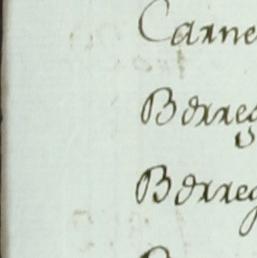 Carne
Berreg
Berreg